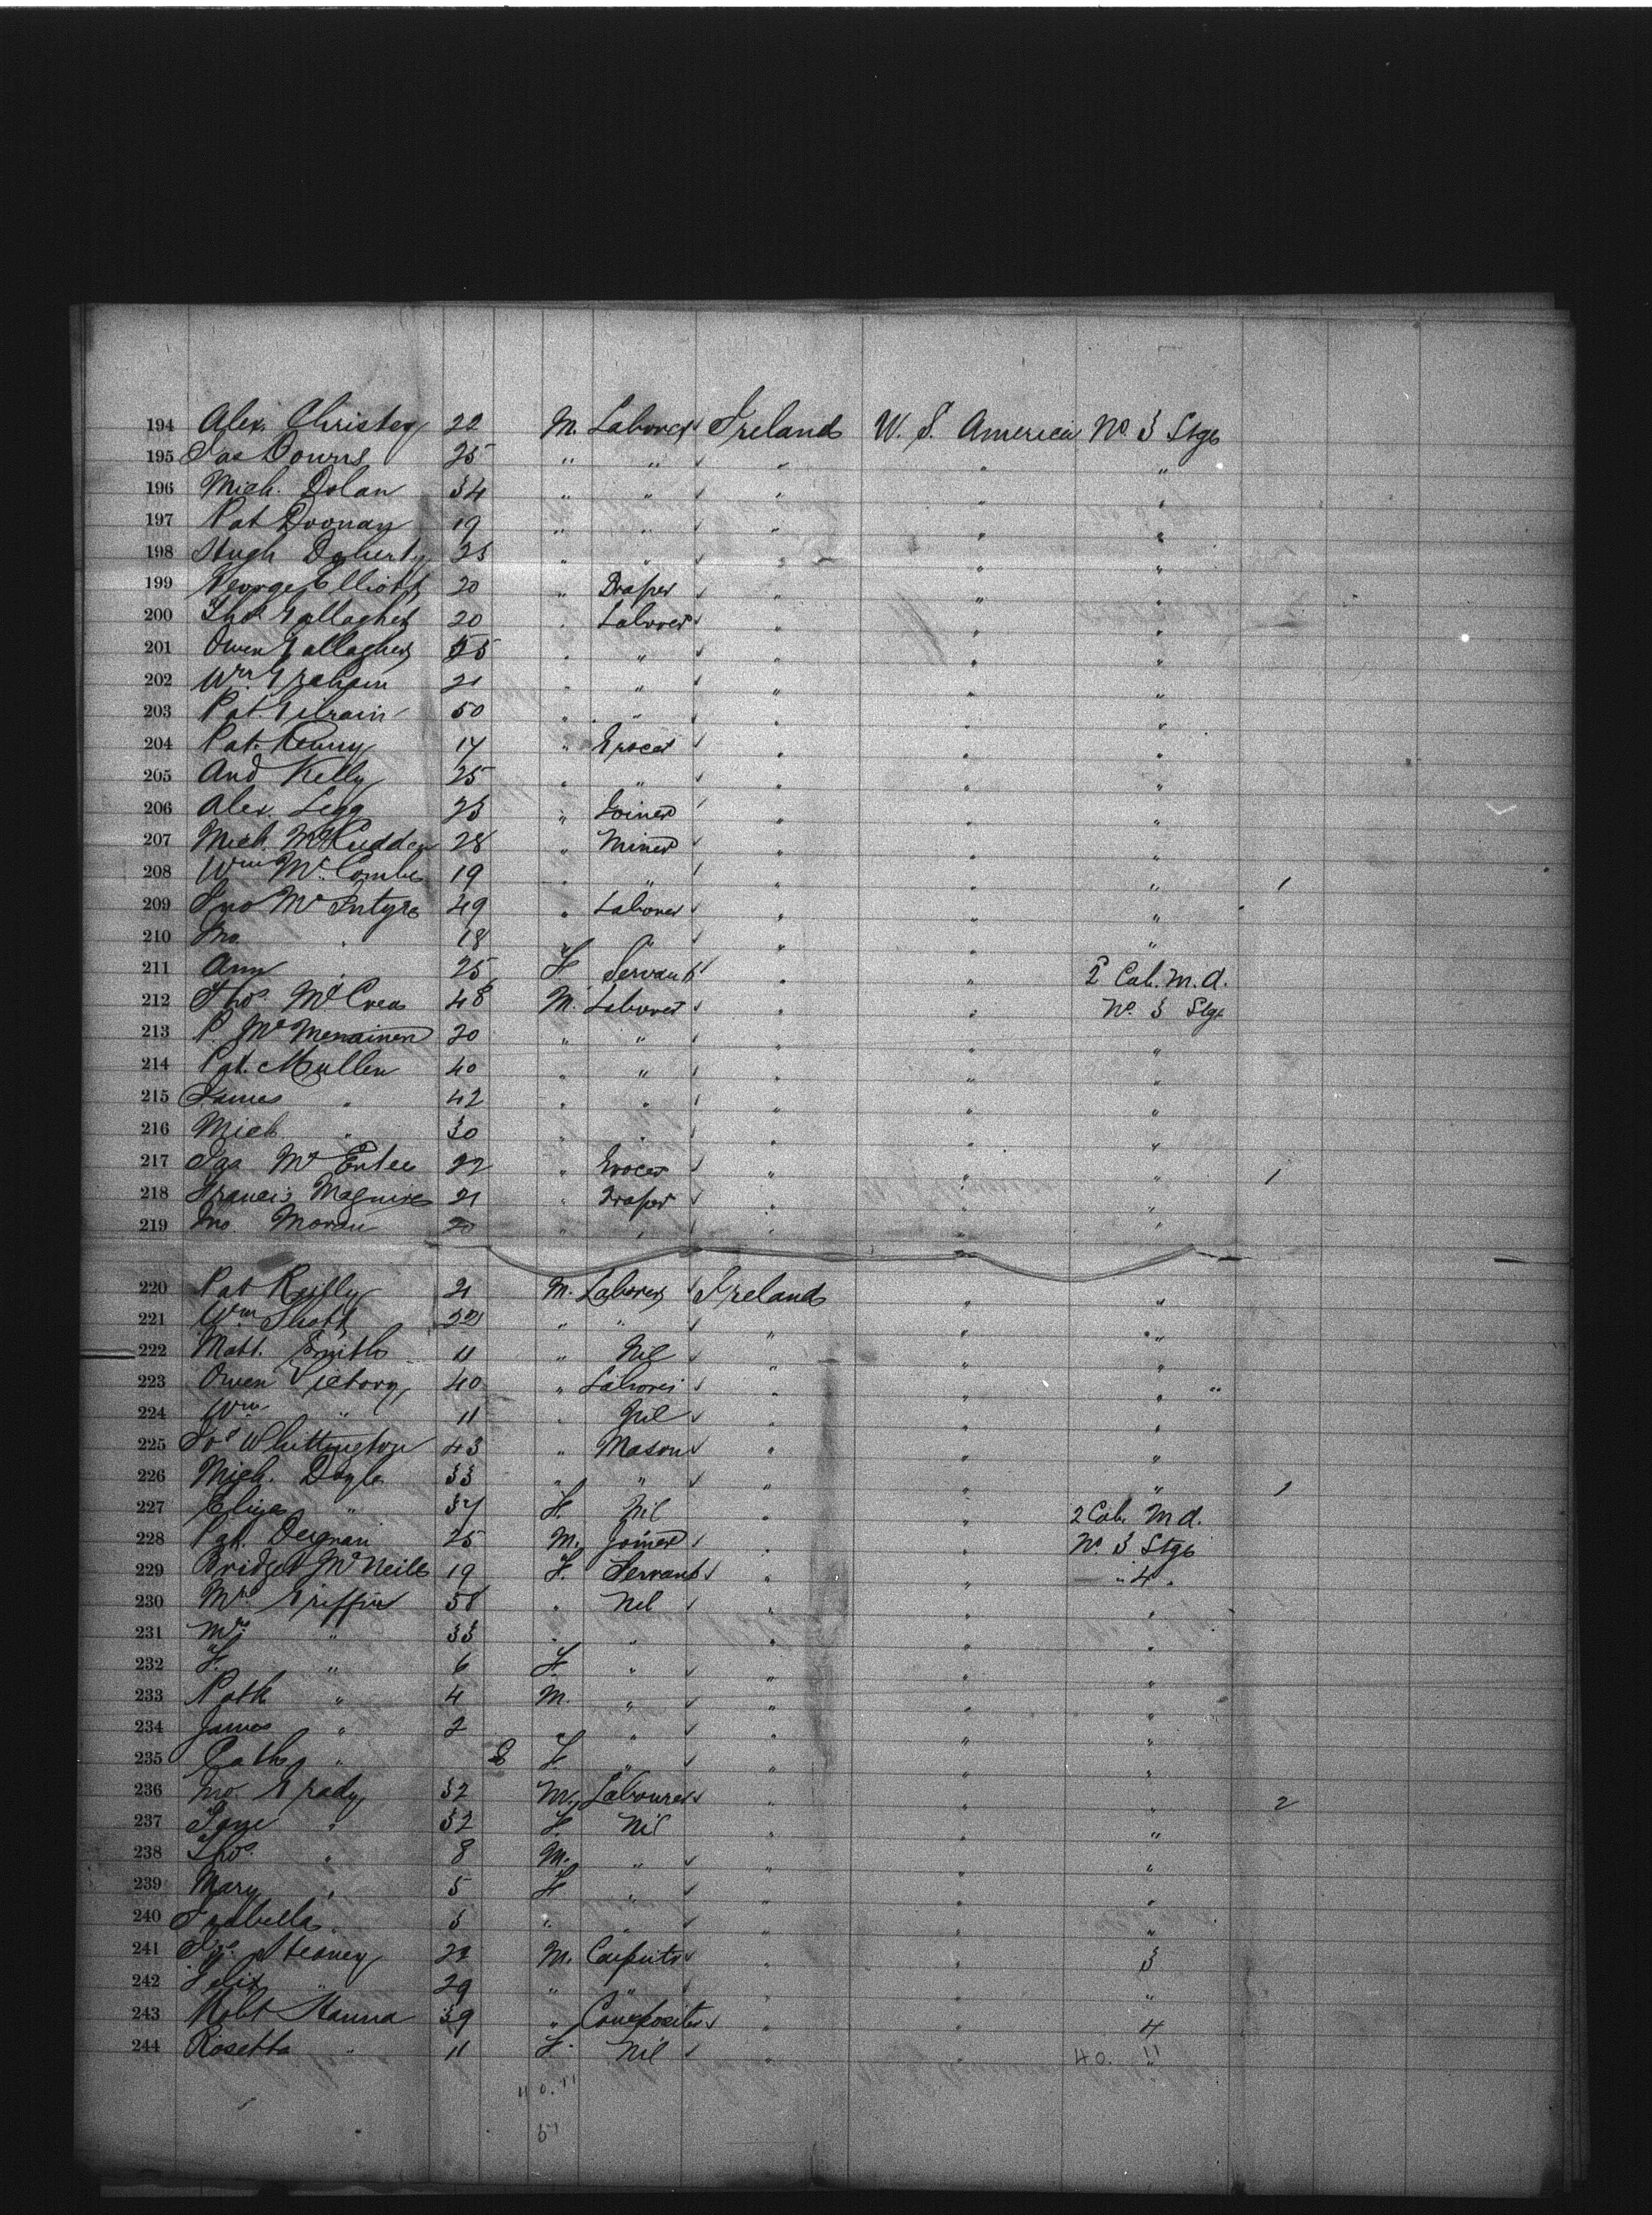 194 Alex. Christey 22 M. Laborer Ireland U. S. America No. 3 Stge
195 Jas Downs 25 " " " " "
196 Mich. Dolan 34 " " " " "
197 Pat Doonan 19 " " " " "
198 Hugh Doherty 25 " " " " "
199 George Elliott 20 " Draper " " "
200 Thos Gallagher 20 " Laborer " " "
201 Owen Gallagher 55 " " " " "
202 Wm Graham 21 " " " " "
203 Pat. Gilrain 50 " " " " "
204 Pat. Kenny 17 " Grocer " " "
205 And Kelly 25 " " " " "
206 Alex. Legg 23 " Joiner " " "
207 Mich. McCudden 28 " Miner " " "
208 Wm McCombe 19 " " " " " 1
209 Jno McIntyre 49 " Laborer " " "
210 Jno. " 18 " " " " "
211 Ann " 25 F Servant " " 2 Cab. M.d.
212 Thos. McCrea 48 M. Laborer " " No. 3 Stge
213 P. McMenaimen 20 " " " " "
214 Pat. Mullen 40 " " " " "
215 James " 42 " " " " "
216 Mich " 30 " " " " "
217 Jas McEntee 22 " Grocer " " " 1
218 Francis Maguire 21 " Draper " " "
219 Jno. Moran 20 " " " " "
220 Pat Reilly 21 M. Laborer Ireland " "
221 Wm Shott 22 " " " " "
222 Matt. Smith 11 " Nil " " "
223 Owen Victory 40 " Laborer " " "
224 Wm " 11 " Nil " " "
225 Jos Whittington 43 " Mason " " "
226 Mich. Doyle 33 " " " " " 1
227 Eliza " 37 F. Nil " " 2 Cab. M d.
228 Pat. Deignan 25 M. Joiner " " No. 3 Stge
229 Bridget McNeill 19 F. Servant " " " 4 "
230 Mrs. Griffin 58 " Nil " " "
231 Mrs " 33 " " " " "
232 F. " 6 F. " " " "
233 Patk " 4 M. " " " "
234 James " 2 " " " " "
235 Cath " 8 F. " " " "
236 Jno. Grady 32 M. Labourer " " " 2
237 Jane " 32 F. Nil " " "
238 Thos. " 8 M. " " " "
239 Mary " 5 F " " " "
240 Isabella " 3 " " " " "
241 22 M. Carpntr " " 3
242 Felix " 29 " " " " "
243 Robt Hanna 39 " Compositor " " 4
244 Rosetta " 11 F. Nil " " "
40. 11